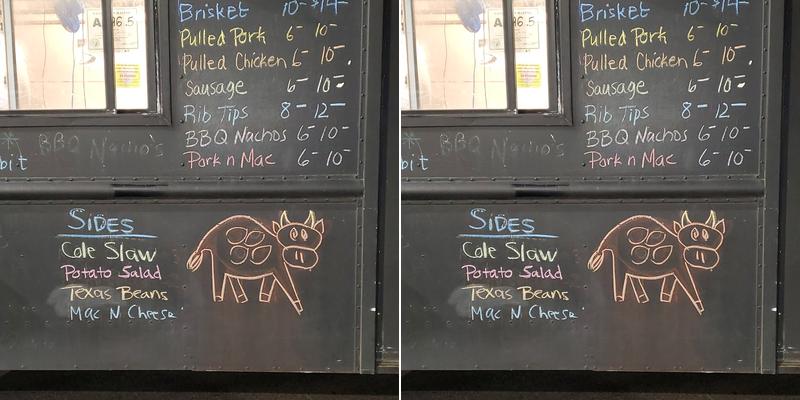 A 96.5
Brisket 10- $14-
Pulled Pork 6- 10-
Pulled Chicken 6- 10-
Sausage 6- 10-
Rib Tips 8- 12-
BBQ Nachos 6- 10-
Pork n Mac 6- 10-
BBQ Nacho's
bit
SIDES
Cole Slaw
Potato Salad
Texas Beans
Mac N Cheese
A 96.5
Brisket 10- $14-
Pulled Pork 6- 10-
Pulled Chicken 6- 10-
Sausage 6- 10-
Rib Tips 8- 12-
BBQ Nachos 6- 10-
Pork n Mac 6- 10-
BBQ Nacho's
bit
SIDES
Cole Slaw
Potato Salad
Texas Beans
Mac N Cheese